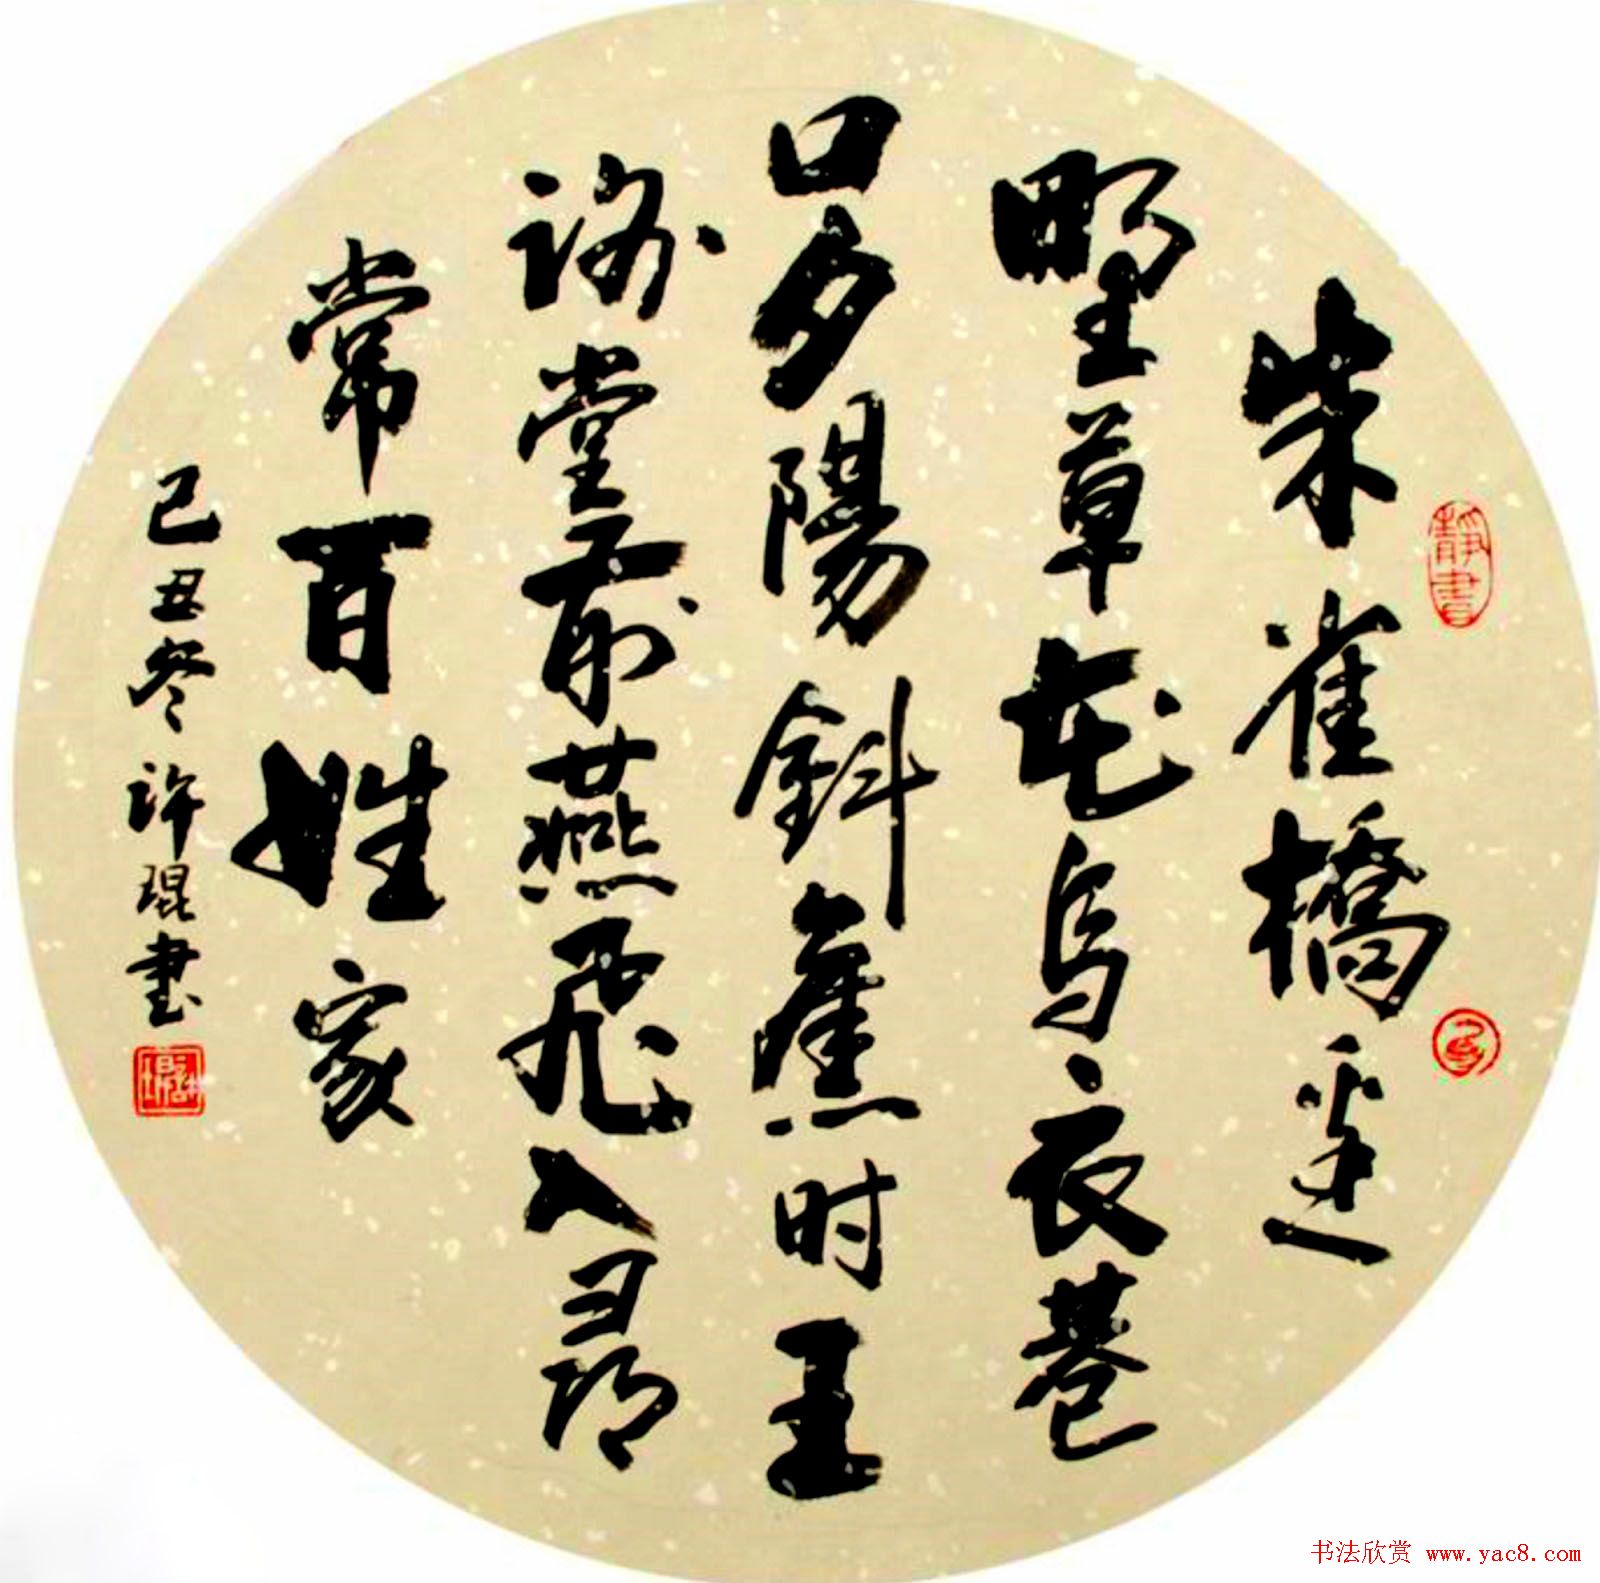 朱雀橋邊
野草花烏衣巷
口夕陽斜舊时王
謝堂前燕飛入尋
常百姓家
己丑冬许琨書
靜書
书法欣赏 www.yac8.com